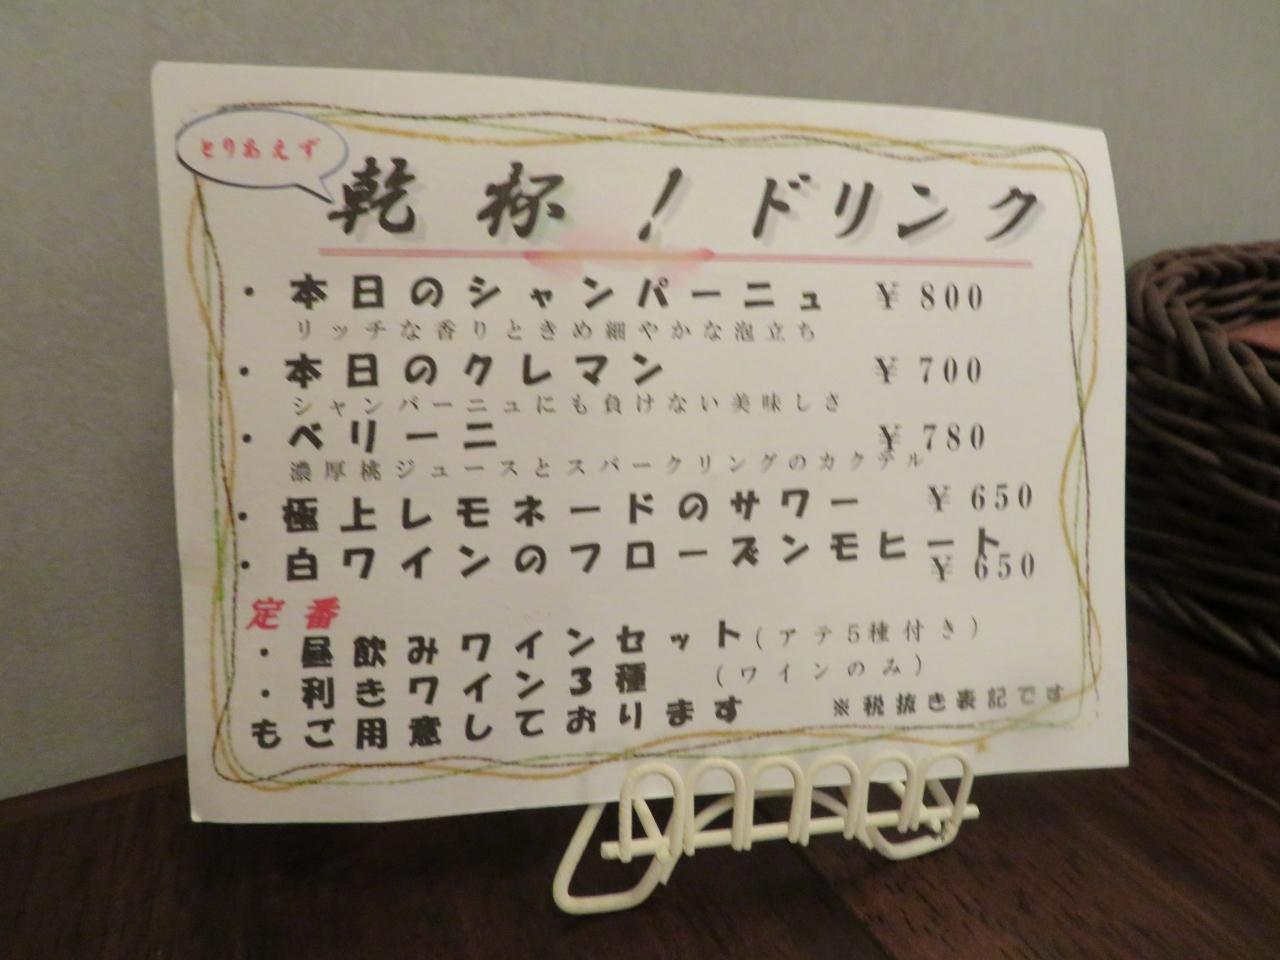 とりあえず
乾杯！ドリンク
・本日のシャンパーニュ ￥800
リッチな香りときめ細やかな泡立ち
・本日のクレマン ￥700
シャンパーニュにも負けない美味しさ
・ベリーニ ￥780
濃厚桃ジュースとスパークリングのカクテル
・極上レモネードのサワー ￥650
・白ワインのフローズンモヒート ￥650
定番
・昼飲みワインセット(アテ5種付き)
・利きワイン3種 (ワインのみ)
もご用意しております ※税抜き表記です